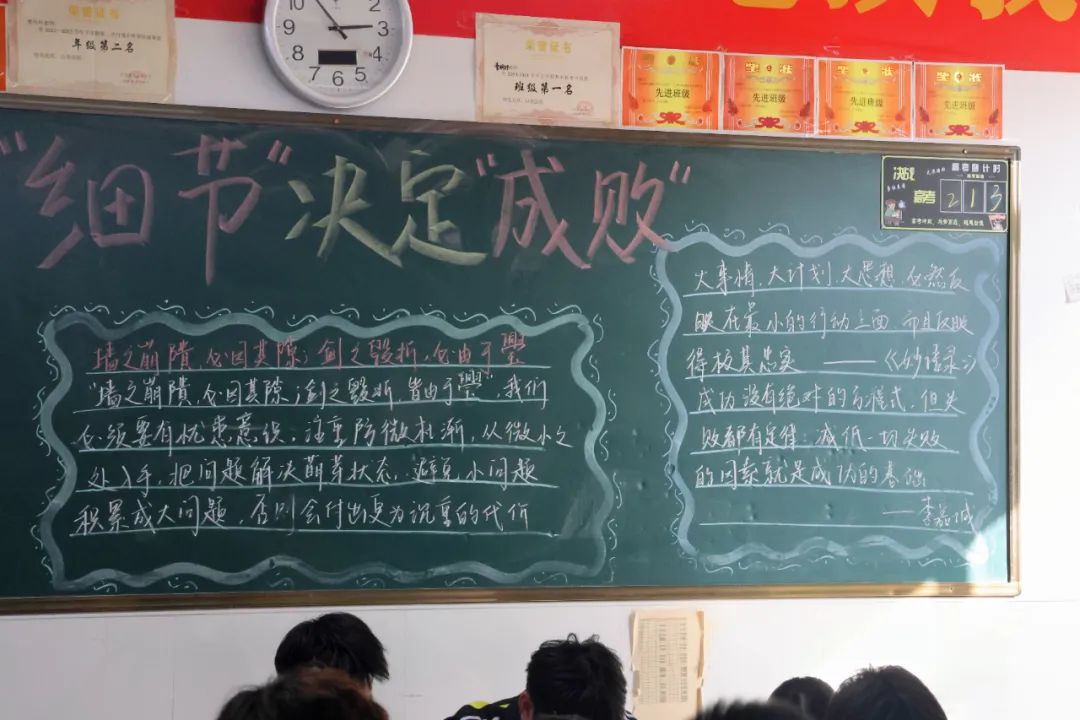 荣誉证书
年级第二名
12
2
3
4
5
6
7
8
9
10
荣誉证书
班级第一名
先进班级
先进班级
先进班级
先进班级
"细节"决定"成败"
决战
高考
213
墙之崩隤,必因其隙;剑之毁折,必由于璺
"墙之崩隤,必因其隙;剑之毁折,皆由于璺",我们
必须要有忧患意识,注重防微杜渐,从微小之
处入手,把问题解决萌芽状态,避免小问题
积累成大问题,否则会付出更为沉重的代价
大事情,大计划,大思想,必然反
映在最小的行动上面,而且反映
得极其忠实 ——《妙语录》
成功没有绝对的方程式,但失
败都有定律:减低一切失败
的因素就是成功的基础
——李嘉诚